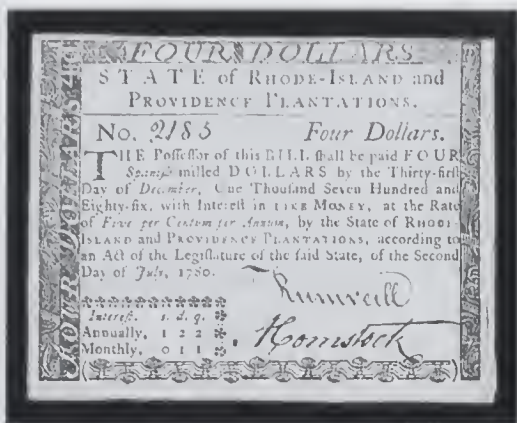 FOUR DOLLARS
STATE of RHODE-ISLAND and
PROVIDENCE PLANTATIONS.
No. 2185 Four Dollars.
THE Poſſeſſor of this BILL ſhall be paid FOUR
Spaniſh milled DOLLARS by the Thirty-firſt
Day of December, One Thouſand Seven Hundred and
Eighty-ſix, with Intereſt in LIKE MONEY, at the Rate
of Five per Centum per Annum, by the State of RHODE-
ISLAND and PROVIDENCE PLANTATIONS, according to
an Act of the Legiſlature of the ſaid State, of the Second
Day of July, 1780.
Intereſt. s. d. q.
Annually, 1 2 2
Monthly, 0 1 1
Comstock
FOUR DOLLARS